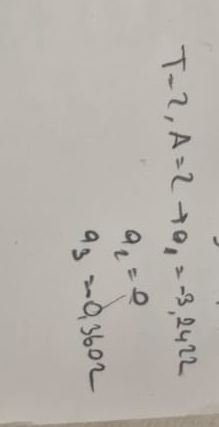 T=2, A=2 → a₁ = -3,2422
a₂ = 0
a₃ = -0,3602